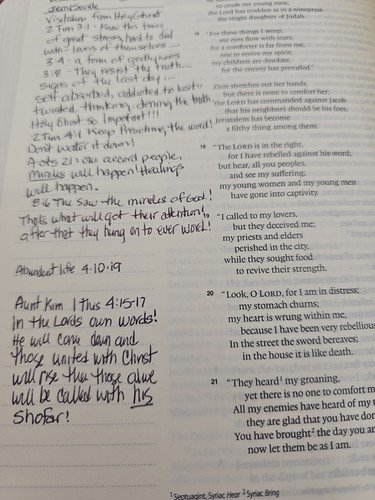 Visitation from Holy Ghost
2 Tim 3:1 - Know this times
of great stress, hard to deal
with - lovers of themselves ....
3:4 - a form of godlyness
3:8 - They resist the truth...
signs of the last day ...
self absorbed, addicted to lust,
twisted thinking, dening the truth
Holy Ghost so Important!!!
2 Tim 4:1 Keep Preaching the word!
Don't water it down!
Acts 2:1 one accord people.
Miricles will happen! Healings
will happen.
8:6 The saw the miricles of God!
Thats what will get their attention!
after that they hung on to ever word!
Abundent life 4.10.19
Aunt Kim 1 Ths 4:15-17
In the Lords own words!
He will come down and
those united with Christ
will rise then those alive
will be called with his
Shofar!
to crush my young men;
the Lord has trodden as in a winepress
the virgin daughter of Judah.
16 "For these things I weep;
my eyes flow with tears;
for a comforter is far from me,
one to revive my spirit;
my children are desolate,
for the enemy has prevailed."
Zion stretches out her hands,
but there is none to comfort her;
the LORD has commanded against Jacob
that his neighbors should be his foes;
Jerusalem has become
a filthy thing among them.
18 "The LORD is in the right,
for I have rebelled against his word;
but hear, all you peoples,
and see my suffering;
my young women and my young men
have gone into captivity.
19 "I called to my lovers,
but they deceived me;
my priests and elders
perished in the city,
while they sought food
to revive their strength.
20 "Look, O LORD, for I am in distress;
my stomach churns;
my heart is wrung within me,
because I have been very rebellious
In the street the sword bereaves;
in the house it is like death.
21 "They heard¹ my groaning,
yet there is no one to comfort m
All my enemies have heard of my t
they are glad that you have don
You have brought² the day you an
now let them be as I am.
¹ Septuagint, Syriac Hear ² Syriac Bring